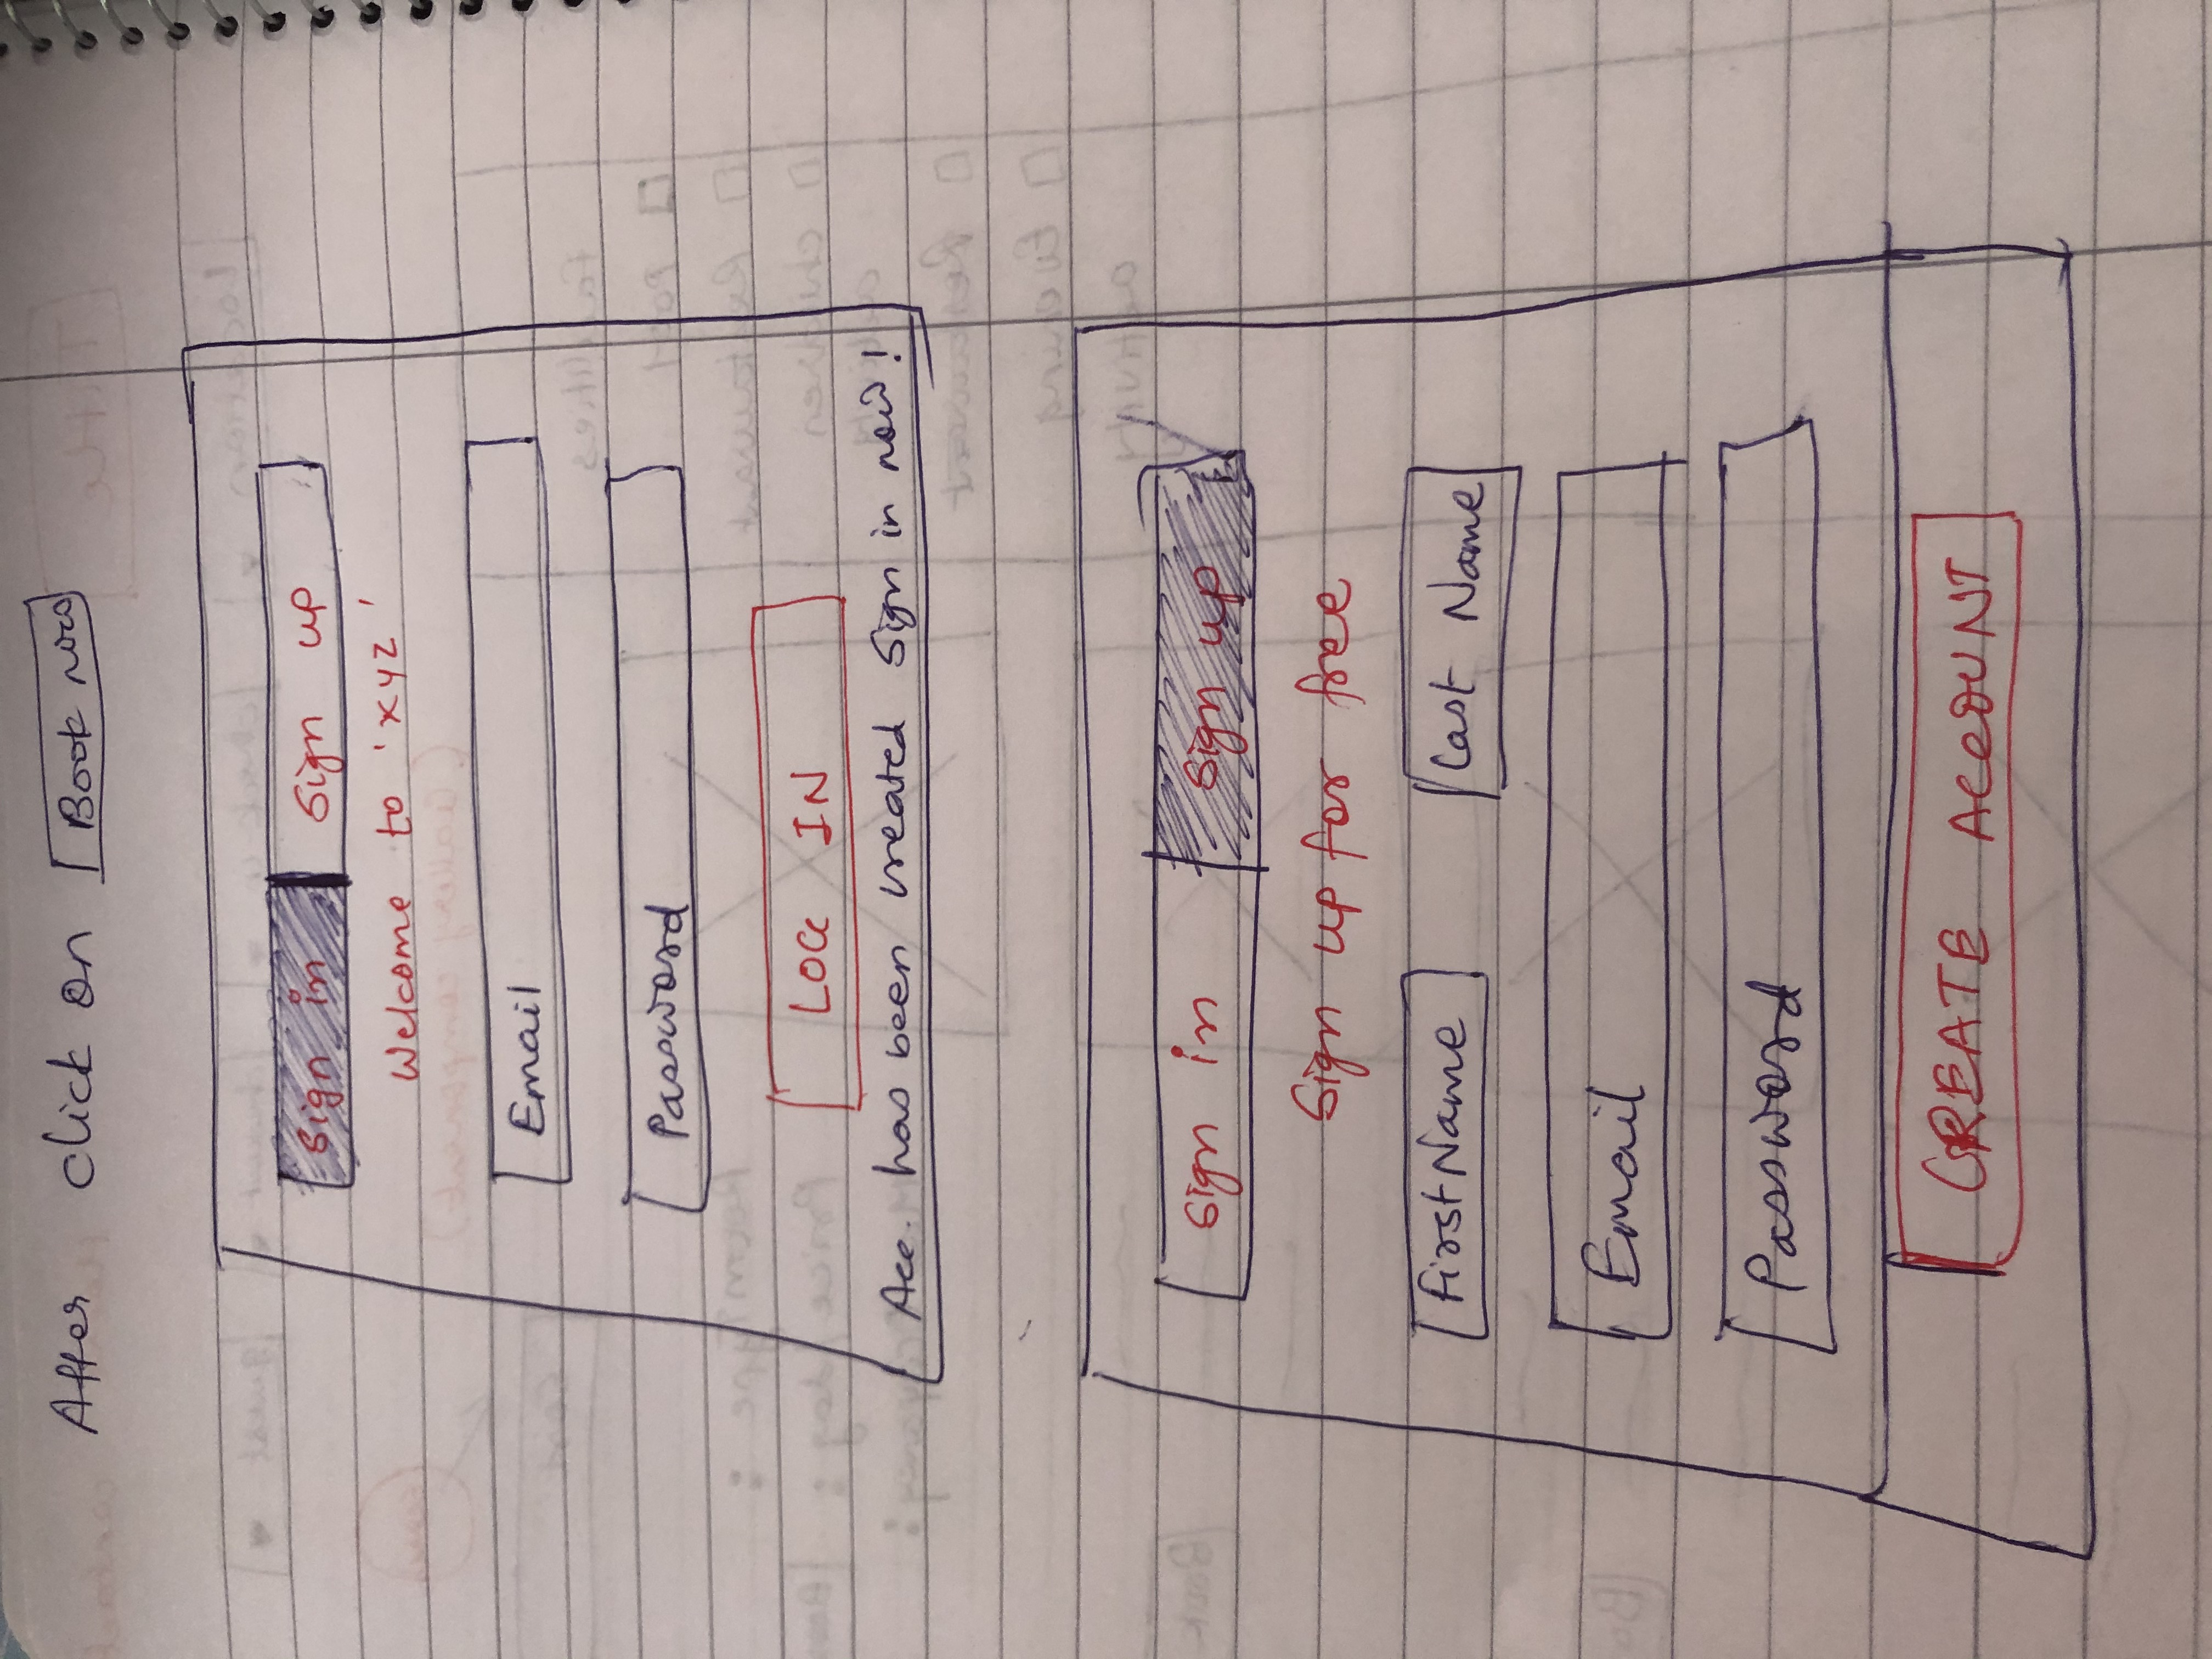 After click on Book now
Sign in Sign up
Welcome to 'xyz'
Email
Password
LOG IN
Acc. has been created Sign in now!
Sign in Sign up
Sign up for free
FirstName Last Name
Email
Password
CREATE ACCOUNT